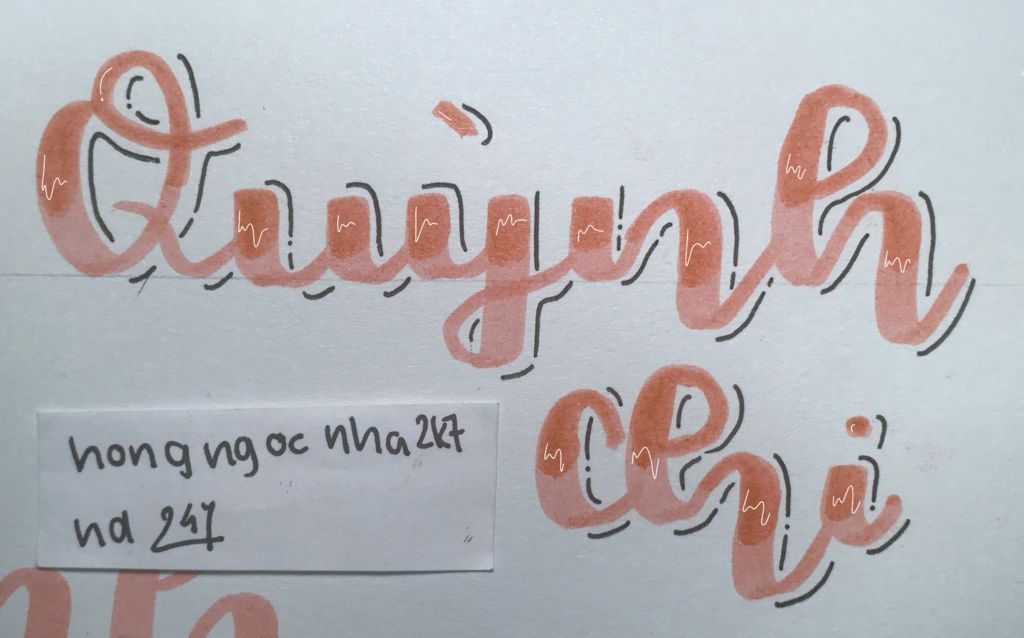 Quỳnh
Chi
hongngoc nha 2k7
nd 247